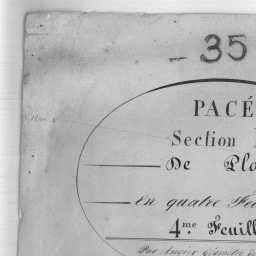 - 35
PACÉ
Section
De Pla
en quatre Feu
4.me Feuill
Par Ancier Géomètre